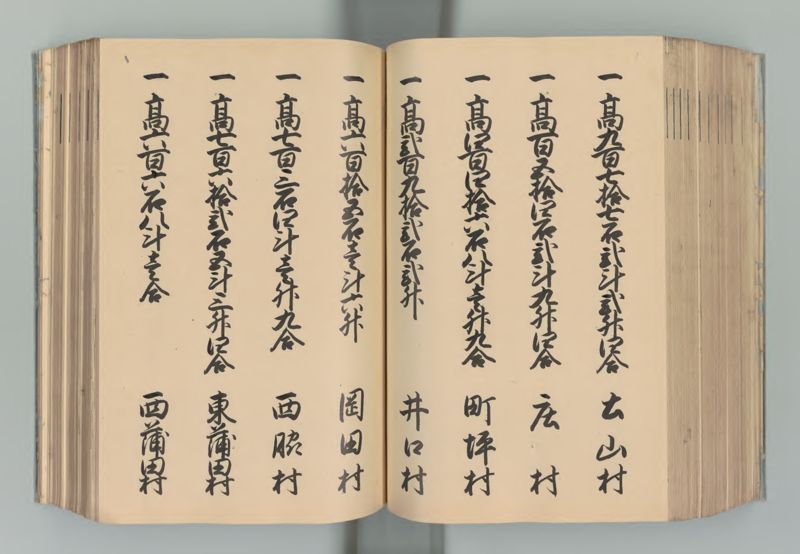 一 髙九百七拾七石弐斗弐升四合 土山村
一 髙百五拾四石弐斗九升四合 庄村
一 髙四百四拾六石八斗壱升九合 町坪村
一 髙弐百九拾弐石弐升 井口村
一 髙六百拾五石壱斗六升 岡田村
一 髙七百三石四斗壱升九合 西脇村
一 髙七百六拾弐石五斗三升四合 東蒲田村
一 髙六百六石八斗壱合 西蒲田村